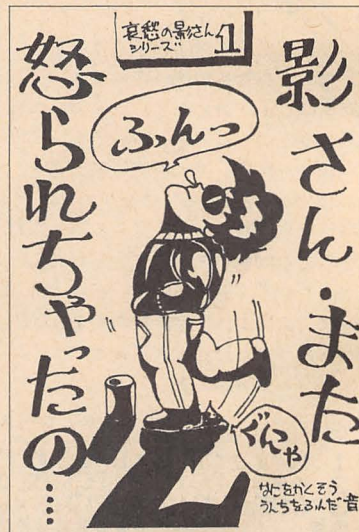 哀愁の影さん
シリーズ 1
影さん・また
怒られちゃったの……
ふんっ
ぐにゃ
なにをかくそう
うんちをふんだ音